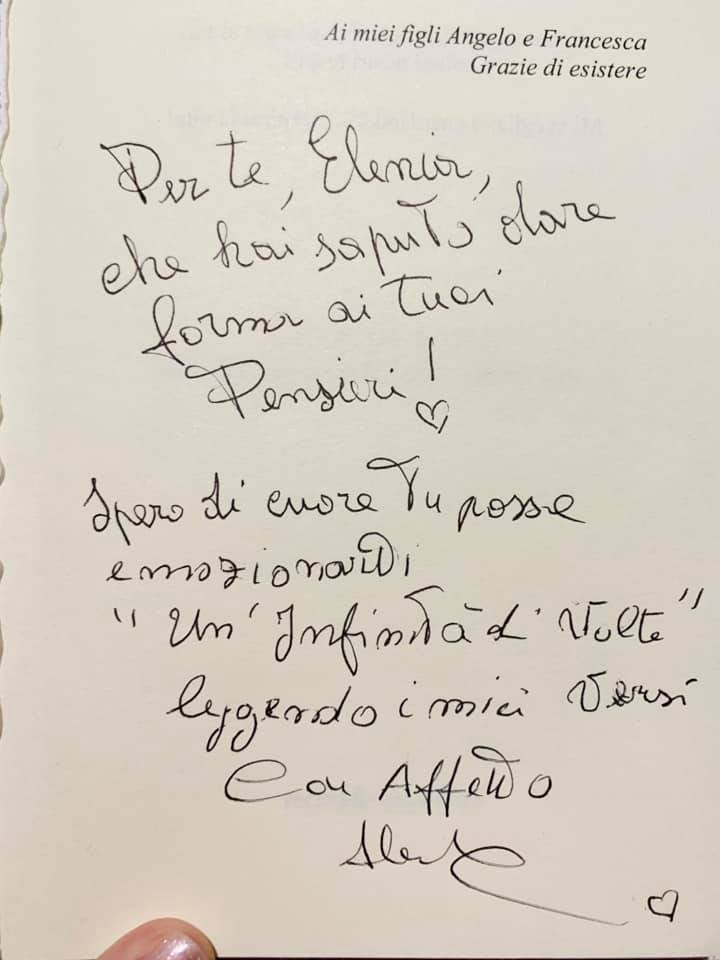 Ai miei figli Angelo e Francesca
Grazie di esistere
Per te, Elenia,
che hai saputo dare
forma ai tuoi
Pensieri!
Spero di cuore Tu possa
emozionarti
"Un'Infinità di Volte"
leggendo i miei Versi
Con Affetto